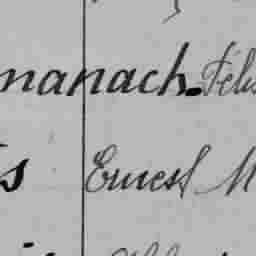 manach. Féli
s Ernest M